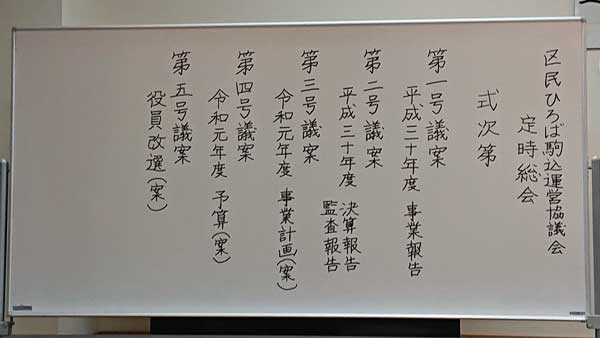 区民ひろば駒込運営協議会
定時総会
式次第
第一号議案
平成三十年度 事業報告
第二号議案
平成三十年度 決算報告
監査報告
第三号議案
令和元年度 事業計画(案)
第四号議案
令和元年度 予算(案)
第五号議案
役員改選(案)